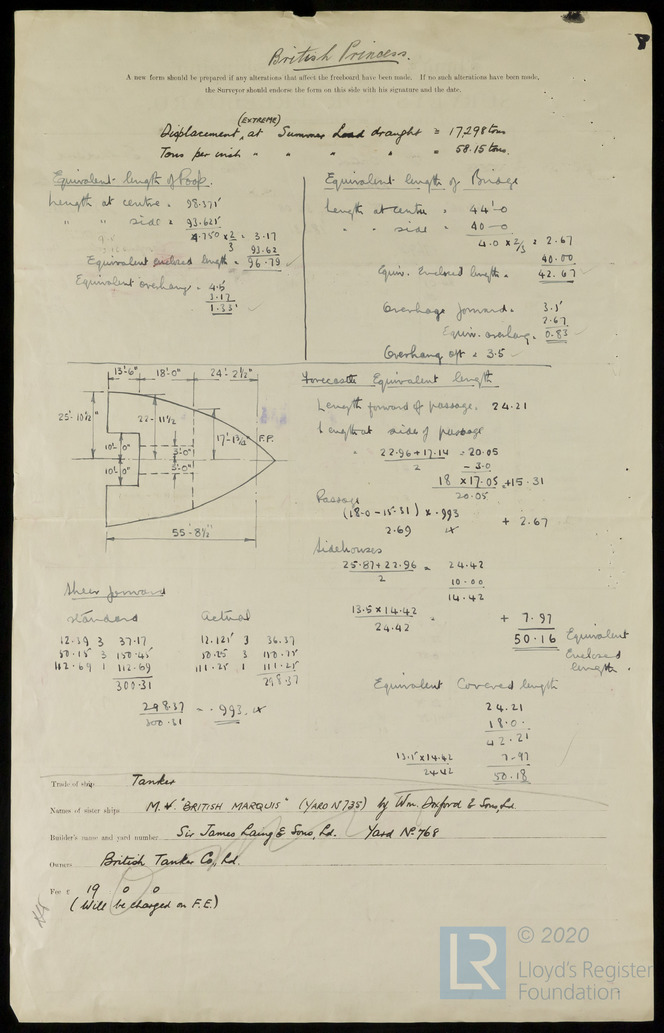 British Princess.
A new form should be prepared if any alterations that affect the freeboard have been made. If no such alterations have been made,
the Surveyor should endorse the form on this side with his signature and the date.
(EXTREME)
Displacement, at Summer Load draught = 17,298 tons
Tons per inch " " " " = 58.15 tons
Equivalent length of Poop.
Length at centre = 98.371'
" " side = 93.621'
4.750 x 2/3 = 3.17
93.62
Equivalent enclosed length = 96.79
Equivalent overhang = 4.5
3.17
1.33'
Equivalent length of Bridge
Length at centre = 44'-0
" " side = 40-0
4.0 x 2/3 = 2.67
40.00
Equiv. Enclosed length = 42.67
Overhang forward = 3.5'
2.67
Equiv. overhang = 0.83
Overhang aft = 3.5
13'-6" 18'-0" 24'-2½"
25'-10½"
22-11½
17'-1¾"
F.P.
10'-0"
3'-0"
3'-0"
10'-0"
55'-8½"
Forecastle Equivalent length
Length forward of passage. 24.21
Length at sides of passage
= 22.96+17.14 = 20.05
2
-3.0
18 x 17.05 +15.31
20.05
Passage
(18.0-15.31) x .993 + 2.67
2.69
Sidehouses
25.87+22.96 = 24.42
2
10.00
14.42
13.5 x 14.42 =
24.42
+ 7.97
50.16 Equivalent
Enclosed
length.
Sheer forward
Standard Actual
12.39 3 37.17 12.125 3 36.37
50.15 3 150.45 50.25 3 150.75
112.69 1 112.69 111.25 1 111.25
300.31 298.37
298.37 = .993
300.31
Equivalent Covered length
24.21
18.0
42.21
13.5 x 14.42 7.97
24.42
50.18
Trade of ship Tanker
Names of sister ships M.V. "BRITISH MARQUIS" (YARD No 735) by Wm. Doxford & Sons, Ld.
Builder's name and yard number Sir James Laing & Sons, Ld. Yard No. 768
Owners British Tanker Co., Ld.
Fee £ 19 0 0
(Will be charged on F.E.)
LR
© 2020
Lloyd's Register
Foundation